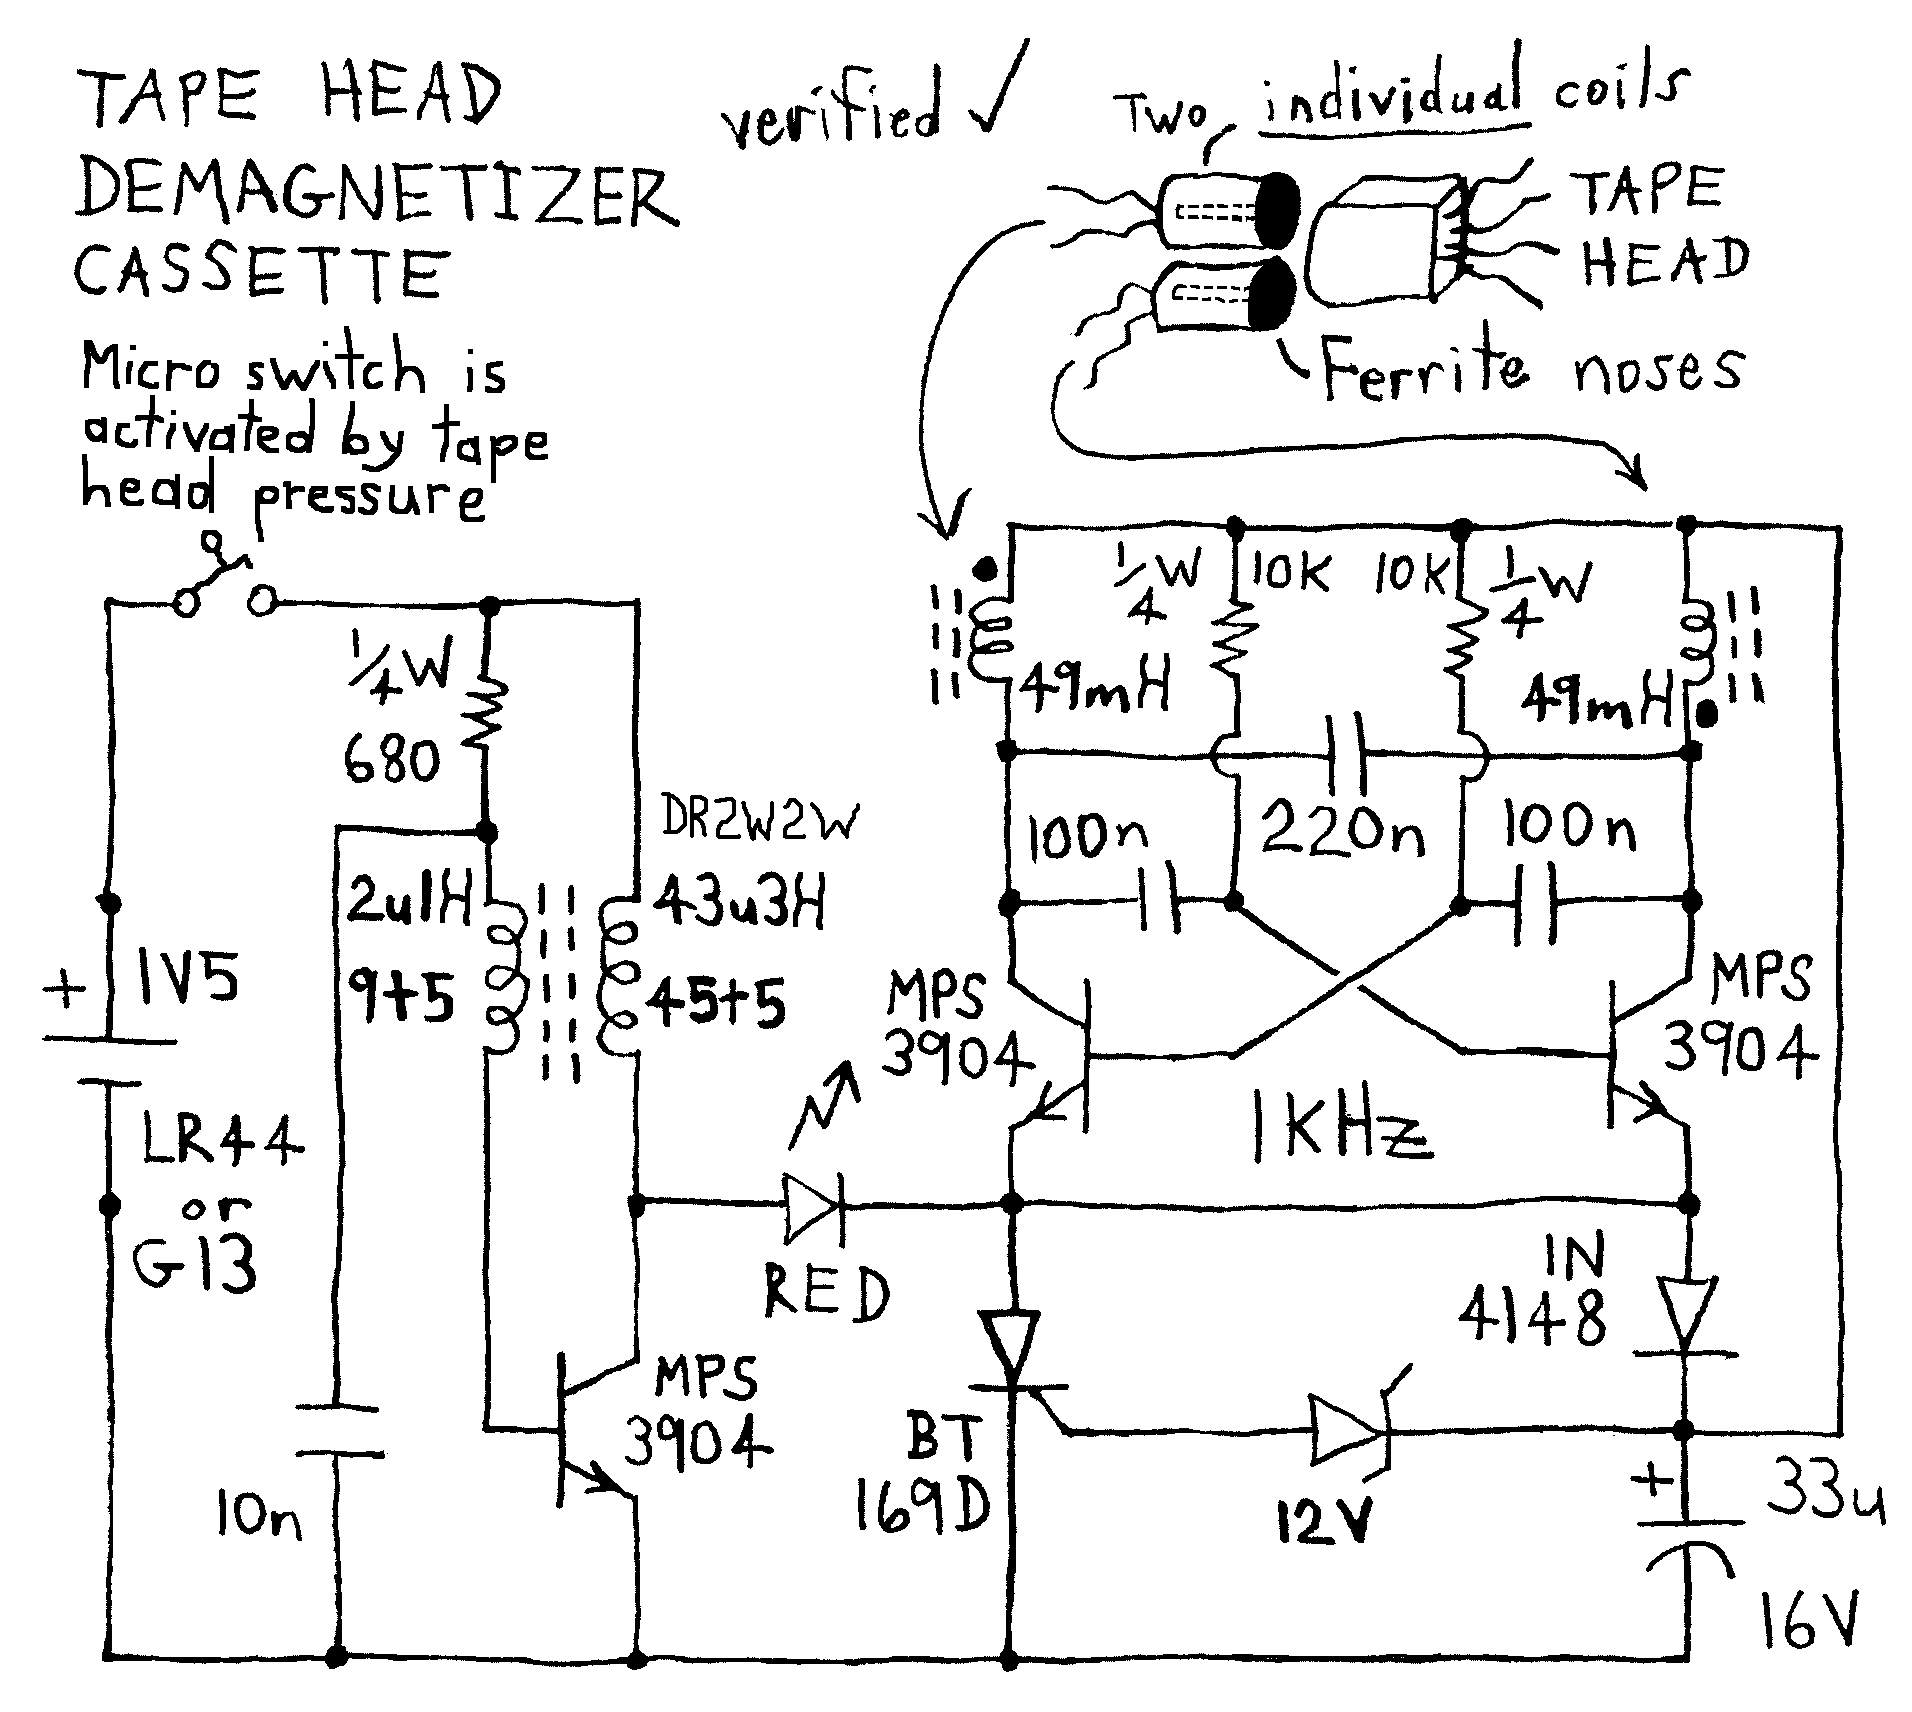 TAPE HEAD
DEMAGNETIZER
CASSETTE
Micro switch is
activated by tape
head pressure
verified ✓
Two individual coils
TAPE
HEAD
Ferrite noses
1/4 W
680
1/4 W
10K
10K
1/4 W
49mH
49mH
DR2W2W
2u1H
43u3H
9t5
45t5
100n
220n
100n
+
1V5
LR44
or
G13
MPS
3904
MPS
3904
1KHz
RED
1N
4148
MPS
3904
BT
169D
12V
+
33u
16V
10n